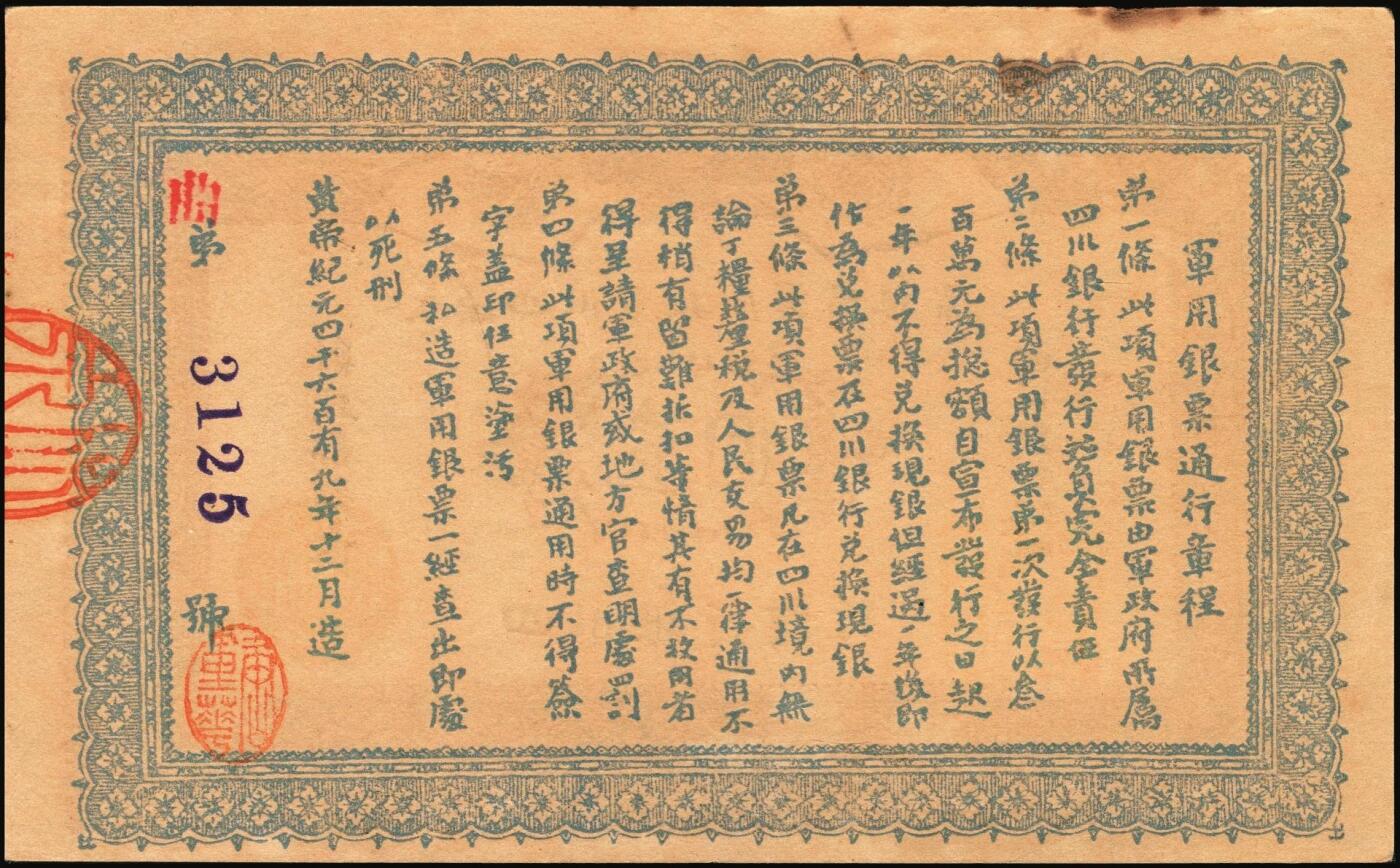 軍用銀票通行章程
第一條 此項軍用銀票由軍政府所屬
四川銀行發行並負完全責任
第二條 此項軍用銀票第一次發行以叁
百萬元為總額自宣布發行之日起
一年以內不得兌換現銀但經過一年後即
作為兌換票在四川銀行兌換現銀
第三條 此項軍用銀票凡在四川境內無
論丁糧釐稅及人民交易均一律通用不
得稍有留難折扣等情其有不收用者
得呈請軍政府或地方官查明處罰
第四條 此項軍用銀票通用時不得簽
字蓋印任意塗污
第五條 私造軍用銀票一經查出即處
以死刑
黃帝紀元四千六百有九年十二月造
第 3125 號